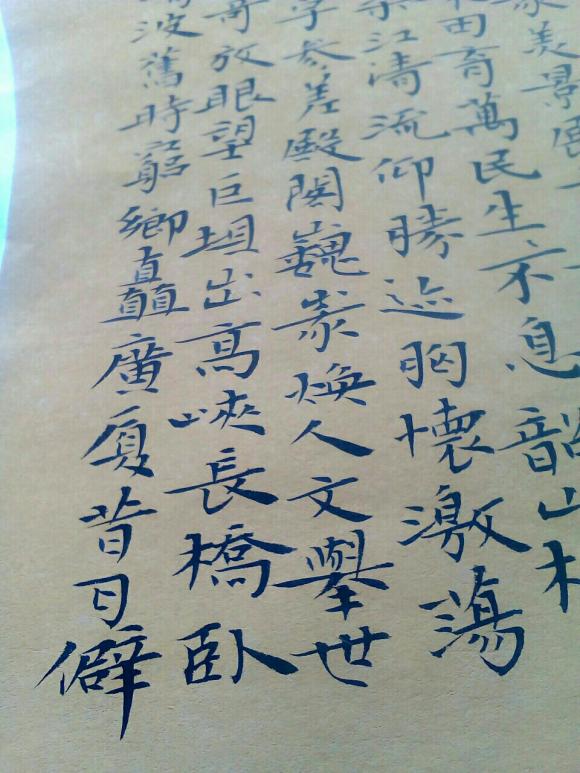 美景風
田育萬民生不息韶山
江濤流仰勝迹胸懷激蕩
參差殿閣巍峩煥人文舉世
放眼望巨垻出高峽長橋臥
波舊時窮鄉矗廣厦昔日僻